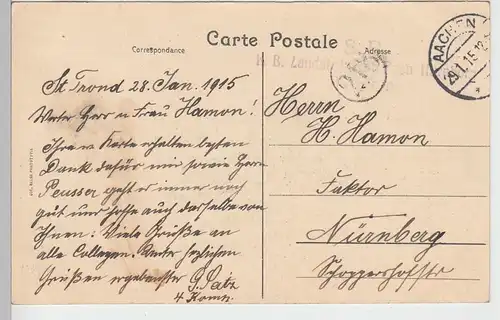 Carte Postale
Correspondance
Adresse
AACHEN
29.1.15.12
S. B.
K. B. Landst.
St Trond 28. Jan. 1915
Werter Herr u Frau Hamon!
Ihre w Karte erhalten besten
Dank dafür mir sowie Herrn
Peusser geht es immer noch
gut und hoffe auch dasselbe von
Ihnen. Viele Grüße an
alle Collegen. Unter herzlichen
Grüßen ergebenster G. Satz
4 Komp.
Herrn
H. Hamon
Faktor
Nürnberg
Schoppershofstr